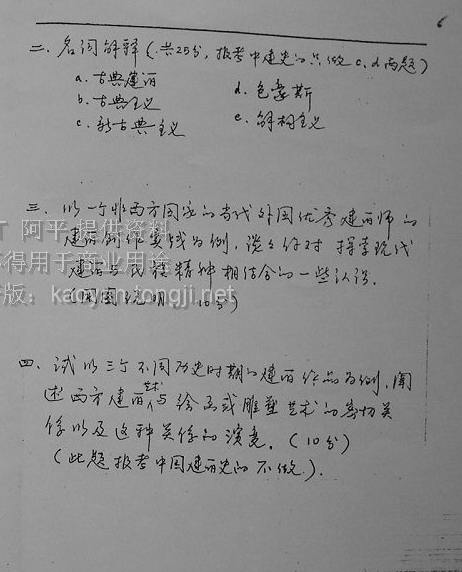 6
二、名词解释(共25分,报考中建史的只做c、d两题)
a. 古典建筑 d. 包豪斯
b. 古典主义 e. 解构主义
c. 新古典主义
三、以一个非西方国家的当代外国优秀建筑师的
建筑创作实践为例,谈谈你对探索现代
建筑与民族精神相结合的一些认识.
(用图说明 10分)
阿平 提供资料
得用于商业用途
版:kaoyan.tongji.net
四、试以三个不同历史时期的建筑作品为例,阐
述西方建筑艺术与绘画或雕塑艺术的密切关
系以及这种关系的演变.(10分)
(此题报考中国建筑史的不做.)